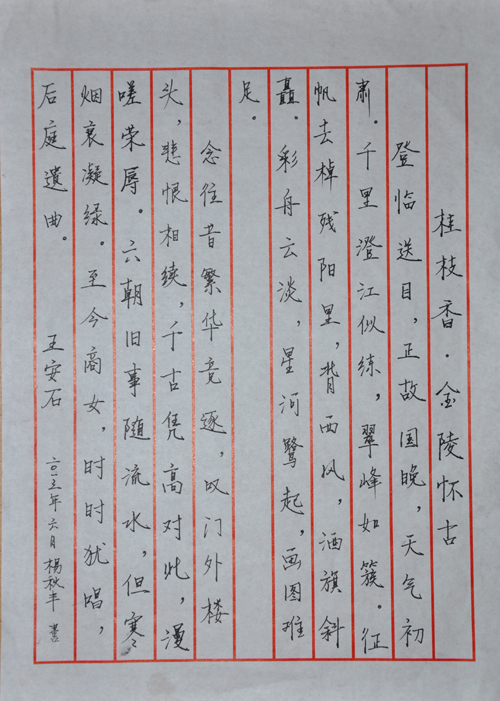 桂枝香·金陵怀古
登临送目，正故国晚，天气初
肃。千里澄江似练，翠峰如簇。征
帆去棹残阳里，背西风，酒旗斜
矗。彩舟云淡，星河鹭起，画图难
足。
念往昔繁华竞逐，叹门外楼
头，悲恨相续，千古凭高对此，漫
嗟荣辱。六朝旧事随流水，但寒
烟衰凝绿。至今商女，时时犹唱，
后庭遺曲。 王安石
二〇一五年六月楊秋丰書